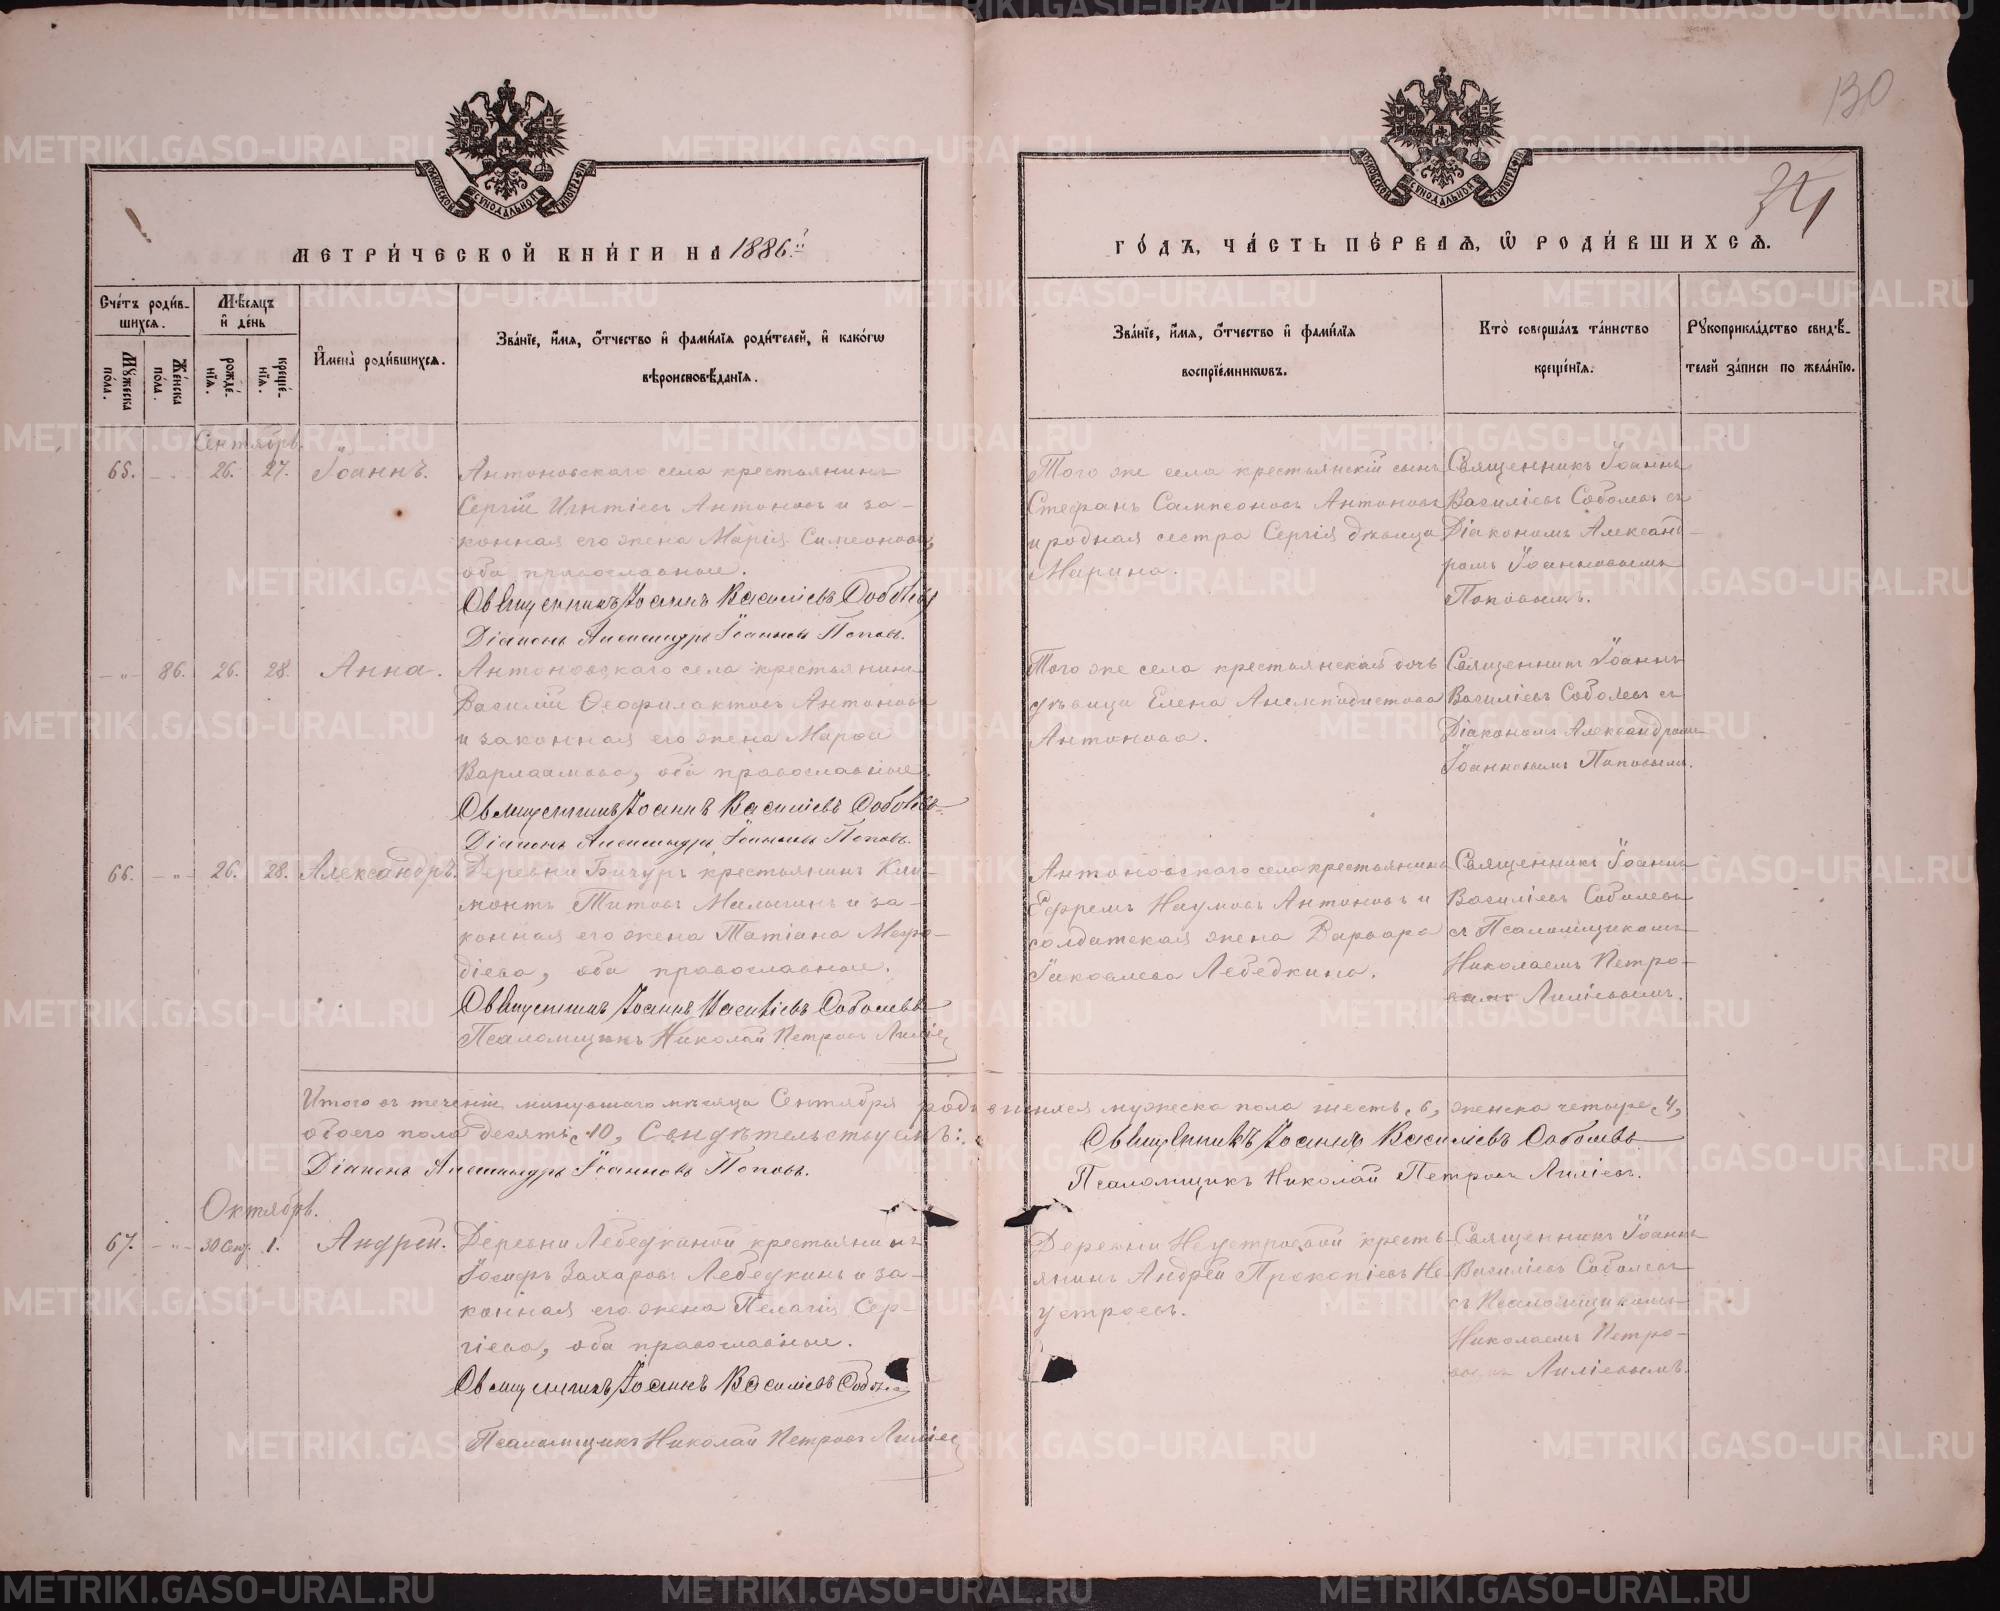 130
34
МЕТРИ́ЧЕСКОЙ КНИ́ГИ НА 1886й
ГО́ДЪ, ЧА́СТЬ ПЕ́РВАѦ, Ѡ РОДИ́ВШИХСѦ.
Сче́тъ роди́в-
шихсѧ.
Мꙋ́жеска по́ла.
Же́нска по́ла.
Мѣ́сѧцъ и҆ де́нь
рожде́-
нїѧ.
креще́-
нїѧ.
И҆мена̀ роди́вшихсѧ.
Зва́нїе, и҆́мѧ, ѻ҆́тчество и҆ фами́лїѧ роди́телей, и҆ како́гѡ
вѣроисповѣ́данїѧ.
Зва́нїе, и҆́мѧ, ѻ҆́тчество и҆ фами́лїѧ
воспрїе́мникѡвъ.
Кто̀ соверша́лъ та́инство
креще́нїѧ.
Рꙋкоприкла́дство свидѣ́-
телей за́писи по жела́нїю.
Сентябрь.
65. -"- 26. 27. Іоаннъ.
Антоновскаго села крестьянинъ
Сергій Игнтіевъ Антоновъ и за-
конная его жена Марія Симеонова,
оба православные.
Священникъ Іоаннъ Василіевъ Соболевъ
Діаконъ Александръ Іоанновъ Поповъ.
Того же села крестьянскій сынъ
Стефанъ Сампсоновъ Антоновъ
и родная сестра Сергія дѣвица
Марина.
Священникъ Іоаннъ
Василіевъ Соболевъ съ
Діакономъ Александ-
ромъ Іоанновымъ
Поповымъ.
-"- 86. 26. 28. Анна.
Антоновскаго села крестьянинъ
Василій Ѳеофилактовъ Антоновъ
и законная его жена Марѳа
Варлаамова, оба православные.
Священникъ Іоаннъ Василіевъ Соболевъ
Діаконъ Александръ Іоанновъ Поповъ.
Того же села крестьянская дочь
дѣвица Елена Анемподистова
Антонова.
Священникъ Іоаннъ
Василіевъ Соболевъ съ
Діакономъ Александромъ
Іоанновымъ Поповымъ.
66. -"- 26. 28. Александръ.
Деревни Бичуръ крестьянинъ Кли-
монтъ Титовъ Малыгинъ и за-
конная его жена Татіана Меѳо-
діева, оба православные.
Священникъ Іоаннъ Василіевъ Соболевъ
Псаломщикъ Николай Петровъ Лиліевъ
Антоновскаго села крестьянинъ
Ефремъ Наумовъ Антоновъ и
солдатская жена Варвара
Іаковлева Лебедкина.
Священникъ Іоаннъ
Василіевъ Соболевъ
съ Псаломщикомъ
Николаемъ Петро-
вымъ Лиліевымъ.
Итого въ теченіи минувшаго мѣсяца Сентября родившихся мужеска пола шесть, 6, женска четыре, 4,
обоего пола десять, 10, Свидѣтельствуемъ:
Священникъ Іоаннъ Василіевъ Соболевъ
Діаконъ Александръ Іоанновъ Поповъ.
Псаломщикъ Николай Петровъ Лиліевъ.
Октябрь.
67. -"- 30 Сент. 1. Андрей.
Деревни Лебедкиной крестьянинъ
Іосифъ Захаровъ Лебедкинъ и за-
конная его жена Пелагія Сер-
гіева, оба православные.
Священникъ Іоаннъ Василіевъ Соболевъ
Псаломщикъ Николай Петровъ Лиліевъ
Деревни Неустроевой кресть-
янинъ Андрей Прокопіевъ Не-
устроевъ.
Священникъ Іоаннъ
Василіевъ Соболевъ
съ Псаломщикомъ
Николаемъ Петро-
вымъ Лиліевымъ.
METRIKI.GASO-URAL.RU